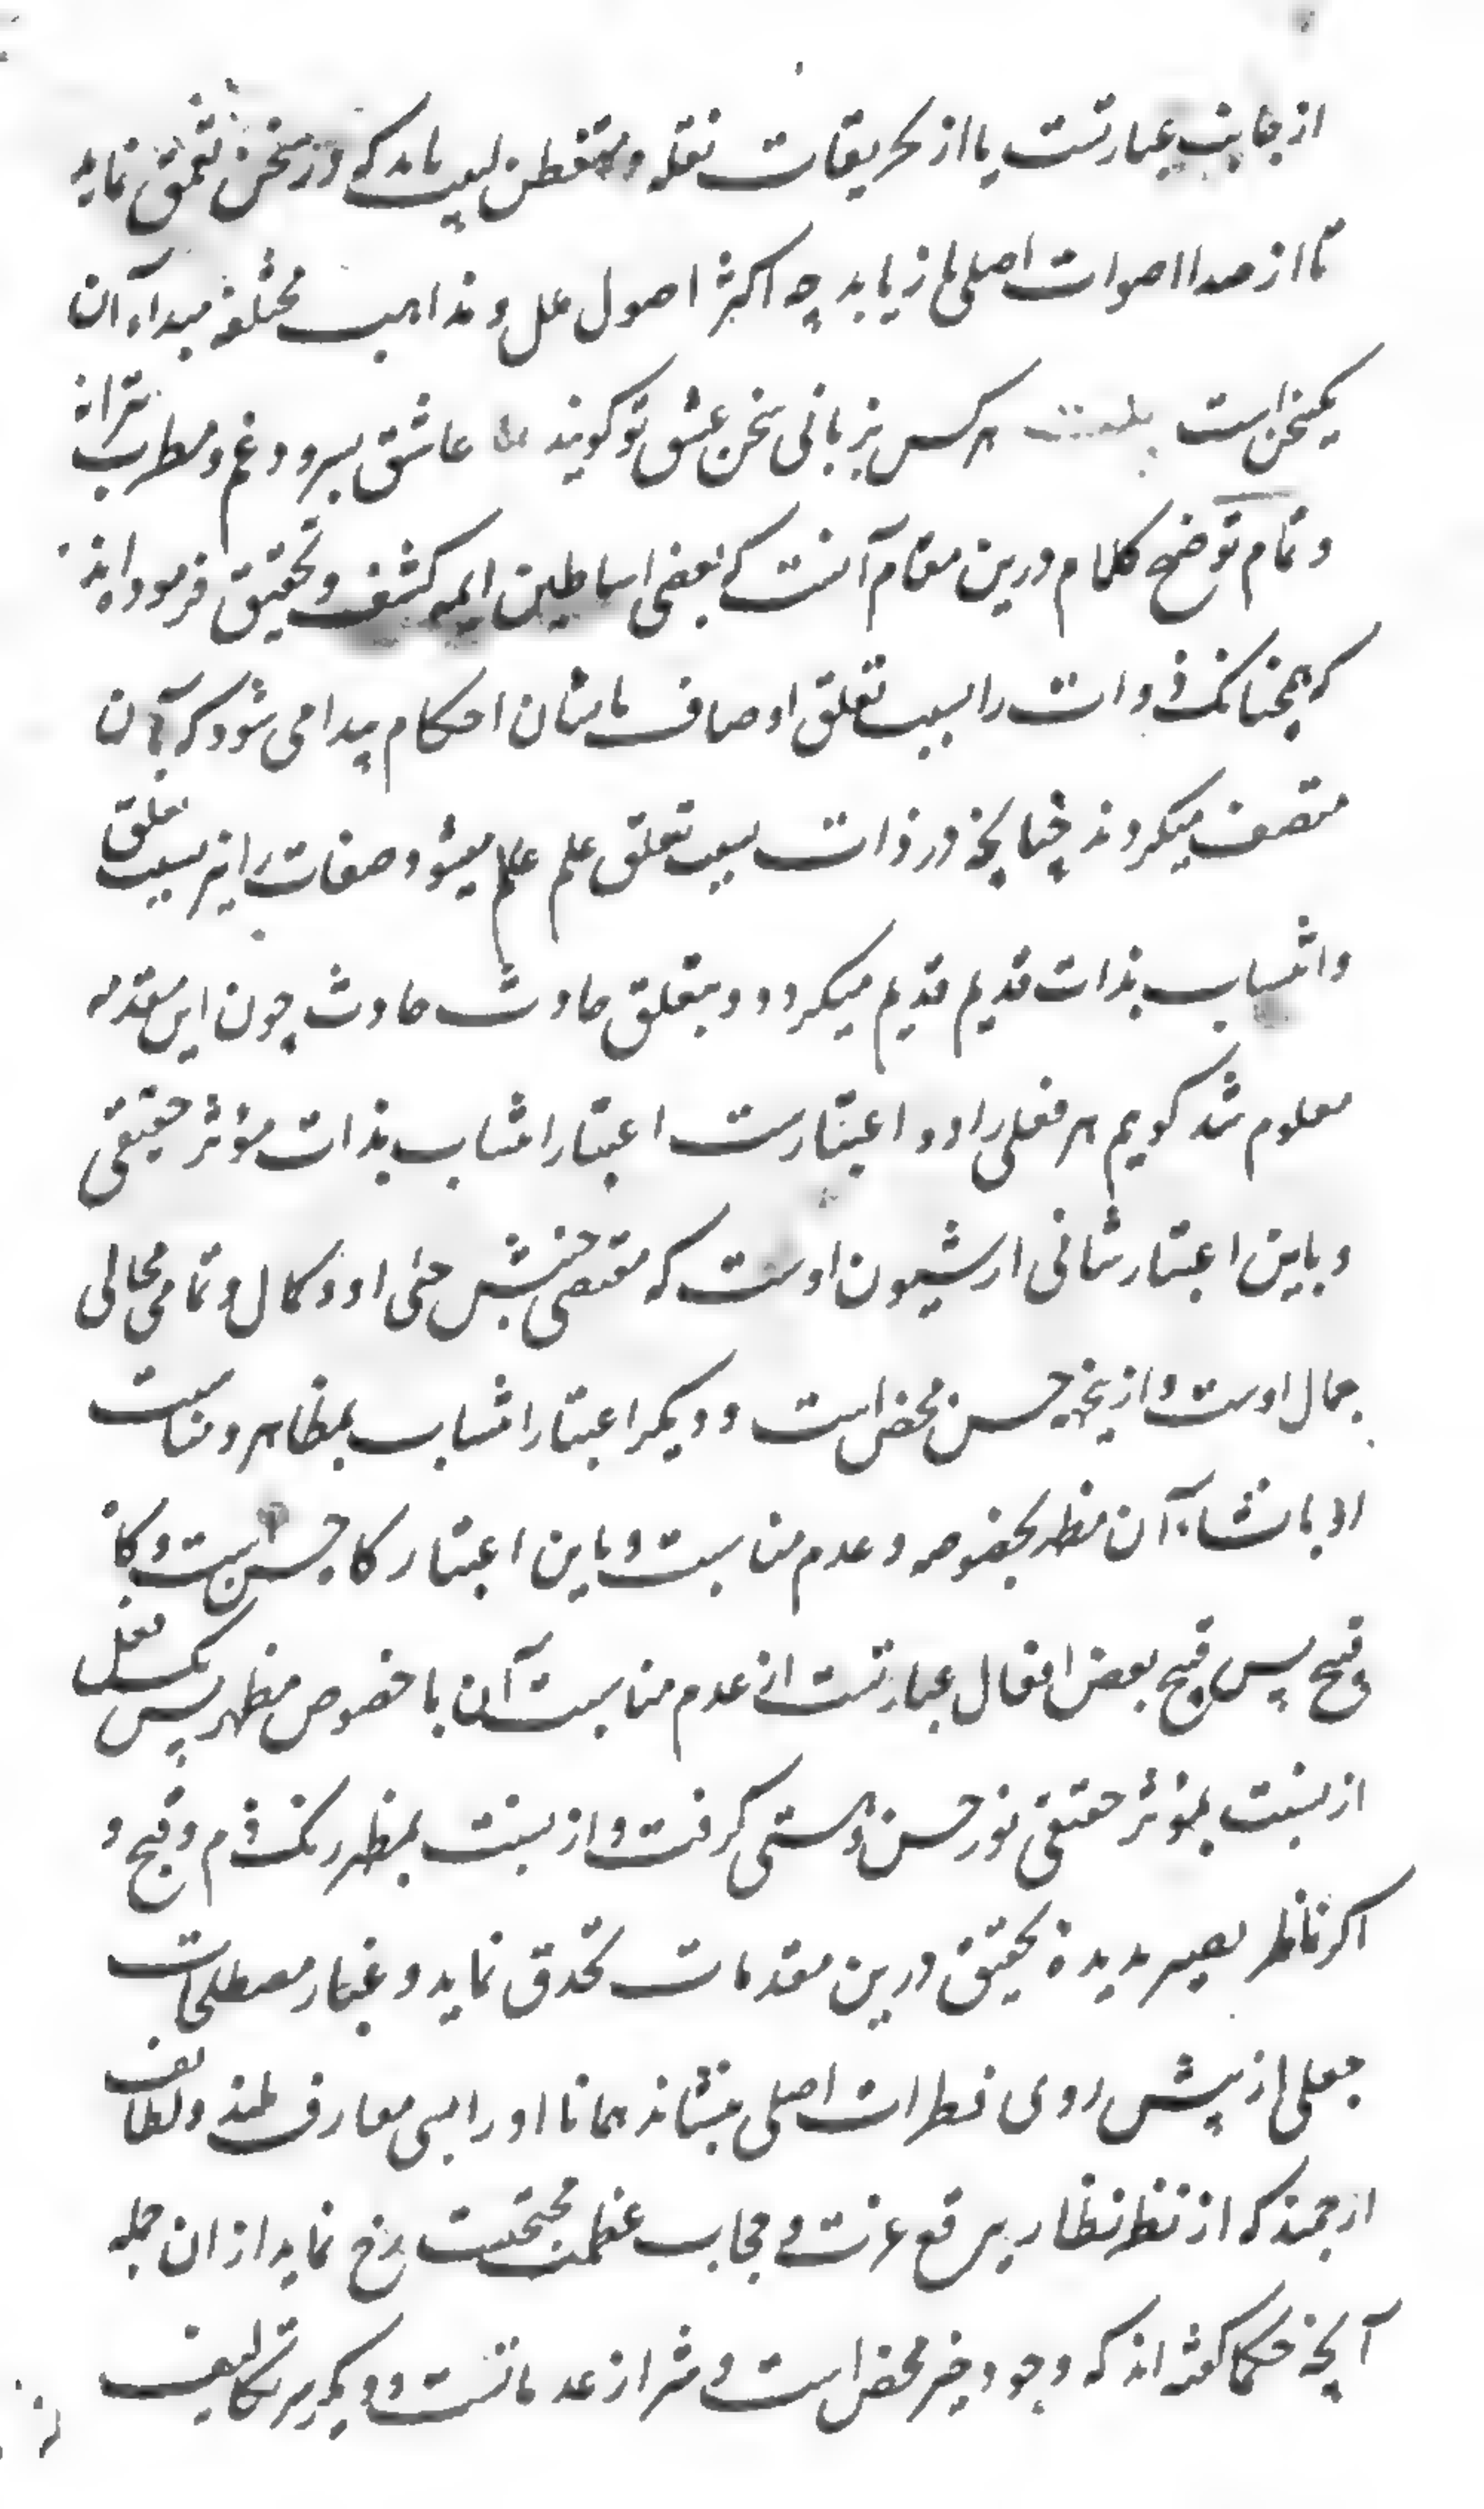 از جانب عبارتست یا از تحریفات نقله و متفطن لبیب باید که در سخن تعمق نماید
تا از صدا اصوات اصلی باز یابد چه اکثر اصول علل و مذاهب مختلفه مبداء آن
یکسخن است هر کس بزبانی سخن عشق تو گویند عاشق بسرود غم و مطرب بترانه
و تمام توضیح کلام درین مقام آنست که بعضی اساطین ایمه کشف و تحقیق فرموده‌اند
که همچنانک ذوات را بسبب تعلق اوصاف بایشان احکام پیدا می شود که بآن
متصف میکردند چنانچه در ذات بسبب تعلق علم عالم میشود صفات را نیز بسبب تعلق
و انتساب بذات قدیم قدیم میکردد و بتعلق حادث حادث چون این مقدمه
معلوم شد کویم هر فعلی را دو اعتبارست اعتبار انتساب بذات مؤثر حقیقی
و باین اعتبار شانی از شیون اوست که مقتضی جنبش حی او و کمال و تمامی مجالی
جمال اوست و ازینجهه حسن محض است و دیگر اعتبار انتساب بمظاهر و مناسبت
او با نشاء آن مظهر بخصوصه و عدم مناسبت و باین اعتبار کاه حسن است و کاه
قبیح پس قبح بعض افعال عبارتست از عدم مناسبت آن با خصوص مظهر پس یک فعل
از نسبت بمؤثر حقیقی نور حسن و هستی کرفت و از نسبت بمظهر رنک ذم و قبح و
اکر ناظر بصیر بدیده تحقیق درین مقدمات تحدق نماید و غبار مصطلحات
جعلی از پیش روی فطرات اصلی بنشاند همانا او را بسی معارف بلند و لطائف
ارجمند که از نظر نظار ببرقع عزت و حجاب عظمت محتجبست رخ نماید از ان جمله
آنچه حکما کفته اند که وجود خیر محض است و شر از عدماتست و دیگر سر تکالیف